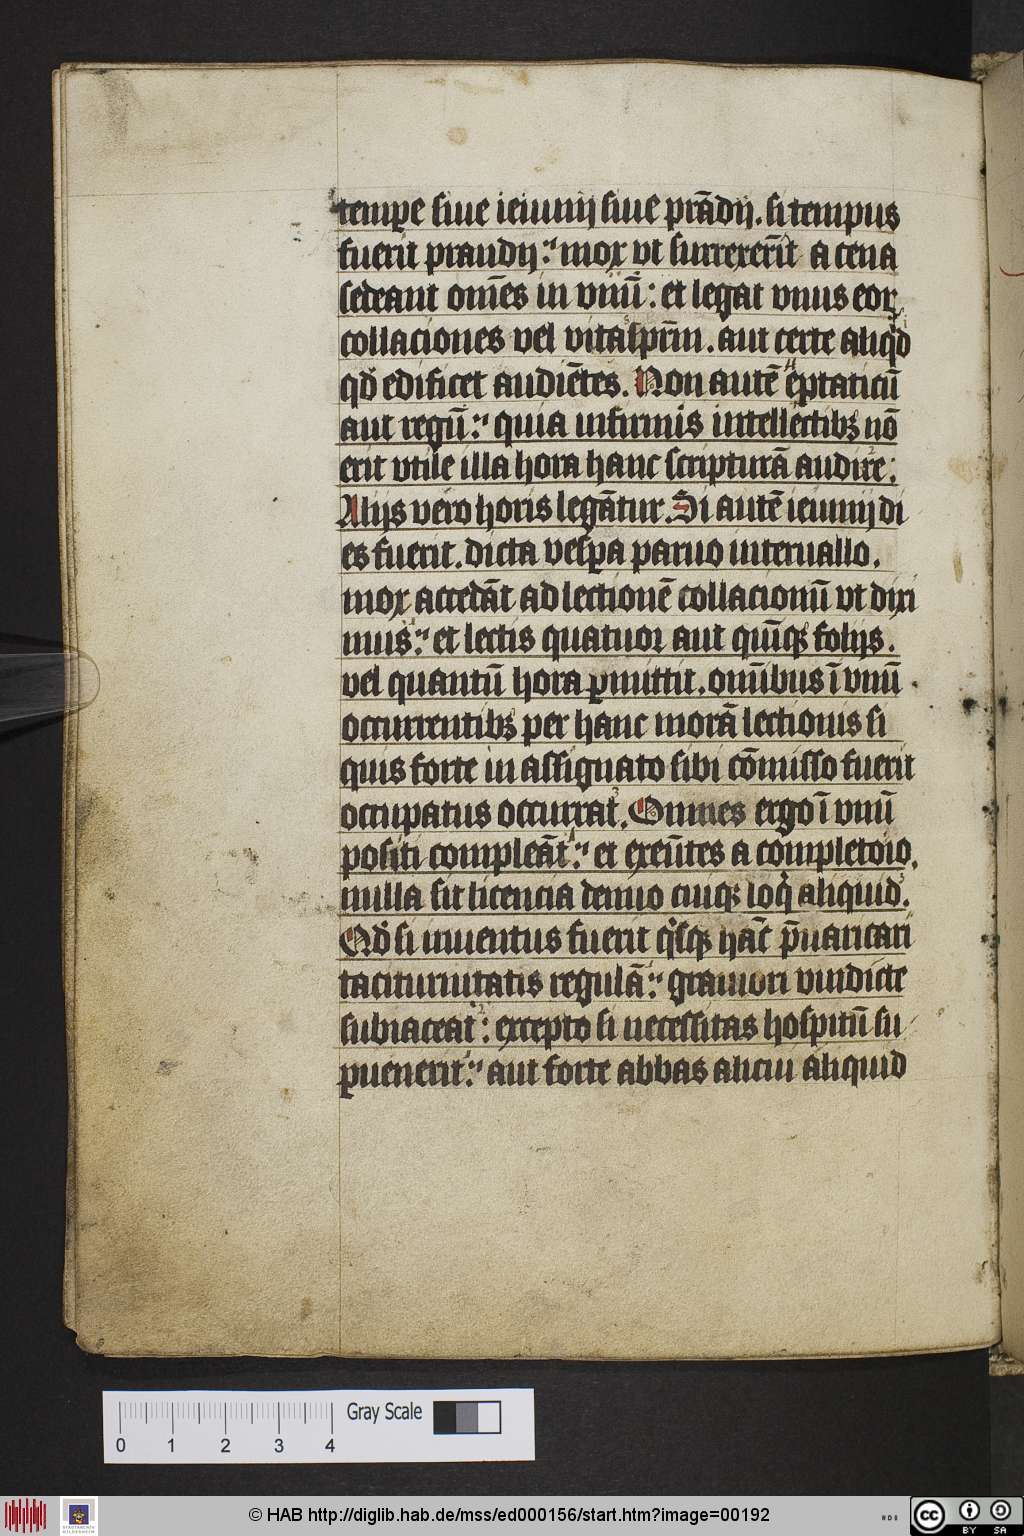 tempe siue ieiunij siue prādij. si tempus
fuerit prandij: mox vt surrexer̄it a cena
sedeant om̄es in vnū: et legat vnus eoꝝ
collaciones vel vitas pr̄m. aut certe aliqd̓
qd̓ edificet audiētes. Non autē eptaticū
aut regū: quia infirmis intellectibꝫ nō
erit vtile illa hora hanc scripturā audire:
Alijs vero horis legātur. Si autē ieiunij di
es fuerit. dicta vesp̲a paruo interuallo.
mox accedāt ad lectionē collacionū vt dixi
mus: et lectis quatuor aut qui̅qꝫ folijs.
vel quantū hora ꝑmittit. om̄ibus ī vnū
occurrentibꝫ per hanc morā lectionis si
quis forte in assignato sibi cōmisso fuerit
occupatus occurrat. Omnes ergo ī vnū
positi compleāt: et exeūtes a completoio.
nulla sit licencia denuo cuiqꝫ loq̓ aliquid.
Qd̓ si inuentus fuerit q̓sqꝫ hāc p̄uaricari
taciturnitatis regulā: grauiori vindicte
subiaceat: excepto si necessitas hospitū su
ꝑuenerit: aut forte abbas alicui aliquid
Gray Scale
0 1 2 3 4
© HAB http://diglib.hab.de/mss/ed000156/start.htm?image=00192
cc BY SA